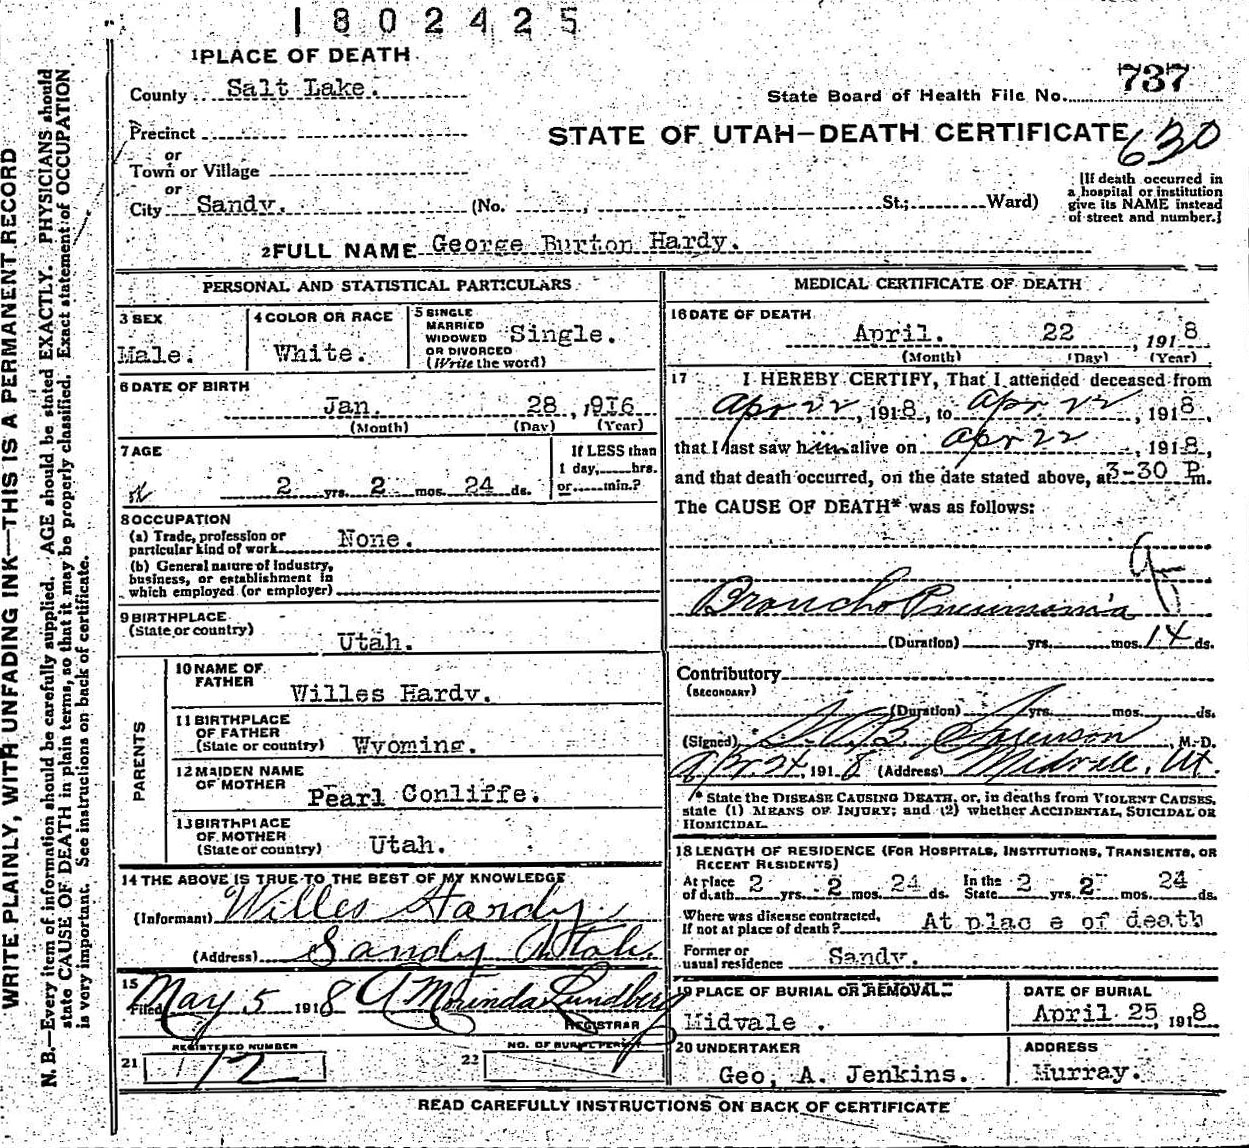 1802425
1 PLACE OF DEATH
County Salt Lake.
State Board of Health File No. 737
Precinct
STATE OF UTAH—DEATH CERTIFICATE
630
or
Town or Village
or
City Sandy. (No. , St.; Ward)
[If death occurred in
a hospital or institution
give its NAME instead
of street and number.]
2 FULL NAME George Burton Hardy.
PERSONAL AND STATISTICAL PARTICULARS
3 SEX
Male.
4 COLOR OR RACE
White.
5 SINGLE
MARRIED
WIDOWED
OR DIVORCED
(Write the word)
Single.
6 DATE OF BIRTH
Jan. 28, 1916
(Month) (Day) (Year)
7 AGE
2 yrs. 2 mos. 24 ds.
If LESS than
1 day, hrs.
or min.?
8 OCCUPATION
(a) Trade, profession or
particular kind of work None.
(b) General nature of Industry,
business, or establishment in
which employed (or employer)
9 BIRTHPLACE
(State or country)
Utah.
PARENTS
10 NAME OF
FATHER
Willes Hardy.
11 BIRTHPLACE
OF FATHER
(State or country) Wyoming.
12 MAIDEN NAME
OF MOTHER
Pearl Conliffe.
13 BIRTHPLACE
OF MOTHER
(State or country) Utah.
14 THE ABOVE IS TRUE TO THE BEST OF MY KNOWLEDGE
(Informant) Willes Hardy
(Address) Sandy Utah.
15
Filed May 5 1918 Lundberg
REGISTRAR
REGISTERED NUMBER
21 12
NO. OF BURIAL PERMIT
22
MEDICAL CERTIFICATE OF DEATH
16 DATE OF DEATH
April. 22, 1918
(Month) (Day) (Year)
17 I HEREBY CERTIFY, That I attended deceased from
Apr 22, 1918, to Apr. 22, 1918,
that I last saw him alive on Apr 22, 1918,
and that death occurred, on the date stated above, at 3-30 P.m.
The CAUSE OF DEATH* was as follows:
Broncho Pneumonia
(Duration) yrs. mos. 14 ds.
Contributory
(SECONDARY)
(Duration) yrs. mos. ds.
(Signed) Sorenson, M.D.
Apr. 24, 1918 (Address) Midvale, Ut.
* State the DISEASE CAUSING DEATH, or, in deaths from VIOLENT CAUSES,
state (1) MEANS OF INJURY; and (2) whether ACCIDENTAL, SUICIDAL OR
HOMICIDAL.
18 LENGTH OF RESIDENCE (FOR HOSPITALS, INSTITUTIONS, TRANSIENTS, OR
RECENT RESIDENTS)
At place
of death 2 yrs. 2 mos. 24 ds. In the
State 2 yrs. 2 mos. 24 ds.
Where was disease contracted,
If not at place of death? At place of death
Former or
usual residence Sandy.
19 PLACE OF BURIAL OR REMOVAL
Midvale .
DATE OF BURIAL
April 25, 1918
20 UNDERTAKER
Geo, A. Jenkins.
ADDRESS
Murray.
READ CAREFULLY INSTRUCTIONS ON BACK OF CERTIFICATE
WRITE PLAINLY, WITH UNFADING INK—THIS IS A PERMANENT RECORD
N. B.—Every item of information should be carefully supplied. AGE should be stated EXACTLY. PHYSICIANS should
state CAUSE OF DEATH in plain terms, so that it may be properly classified. Exact statement of OCCUPATION
is very important. See instructions on back of certificate.